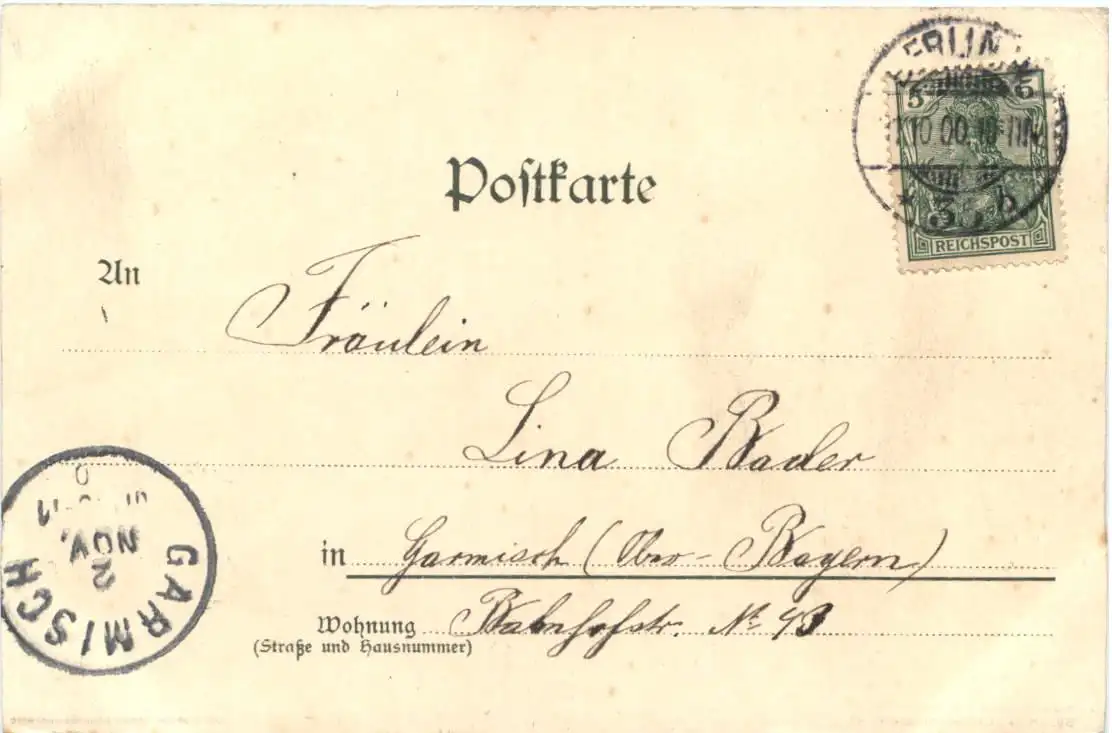 BERLIN
5 5
10 00
3 b
REICHSPOST
Postkarte
An
Fräulein
Lina Bader
in Garmisch (Ober-Bayern)
Wohnung Bahnhofstr. No 43
(Straße und Hausnummer)
GARMISCH
2
NOV.